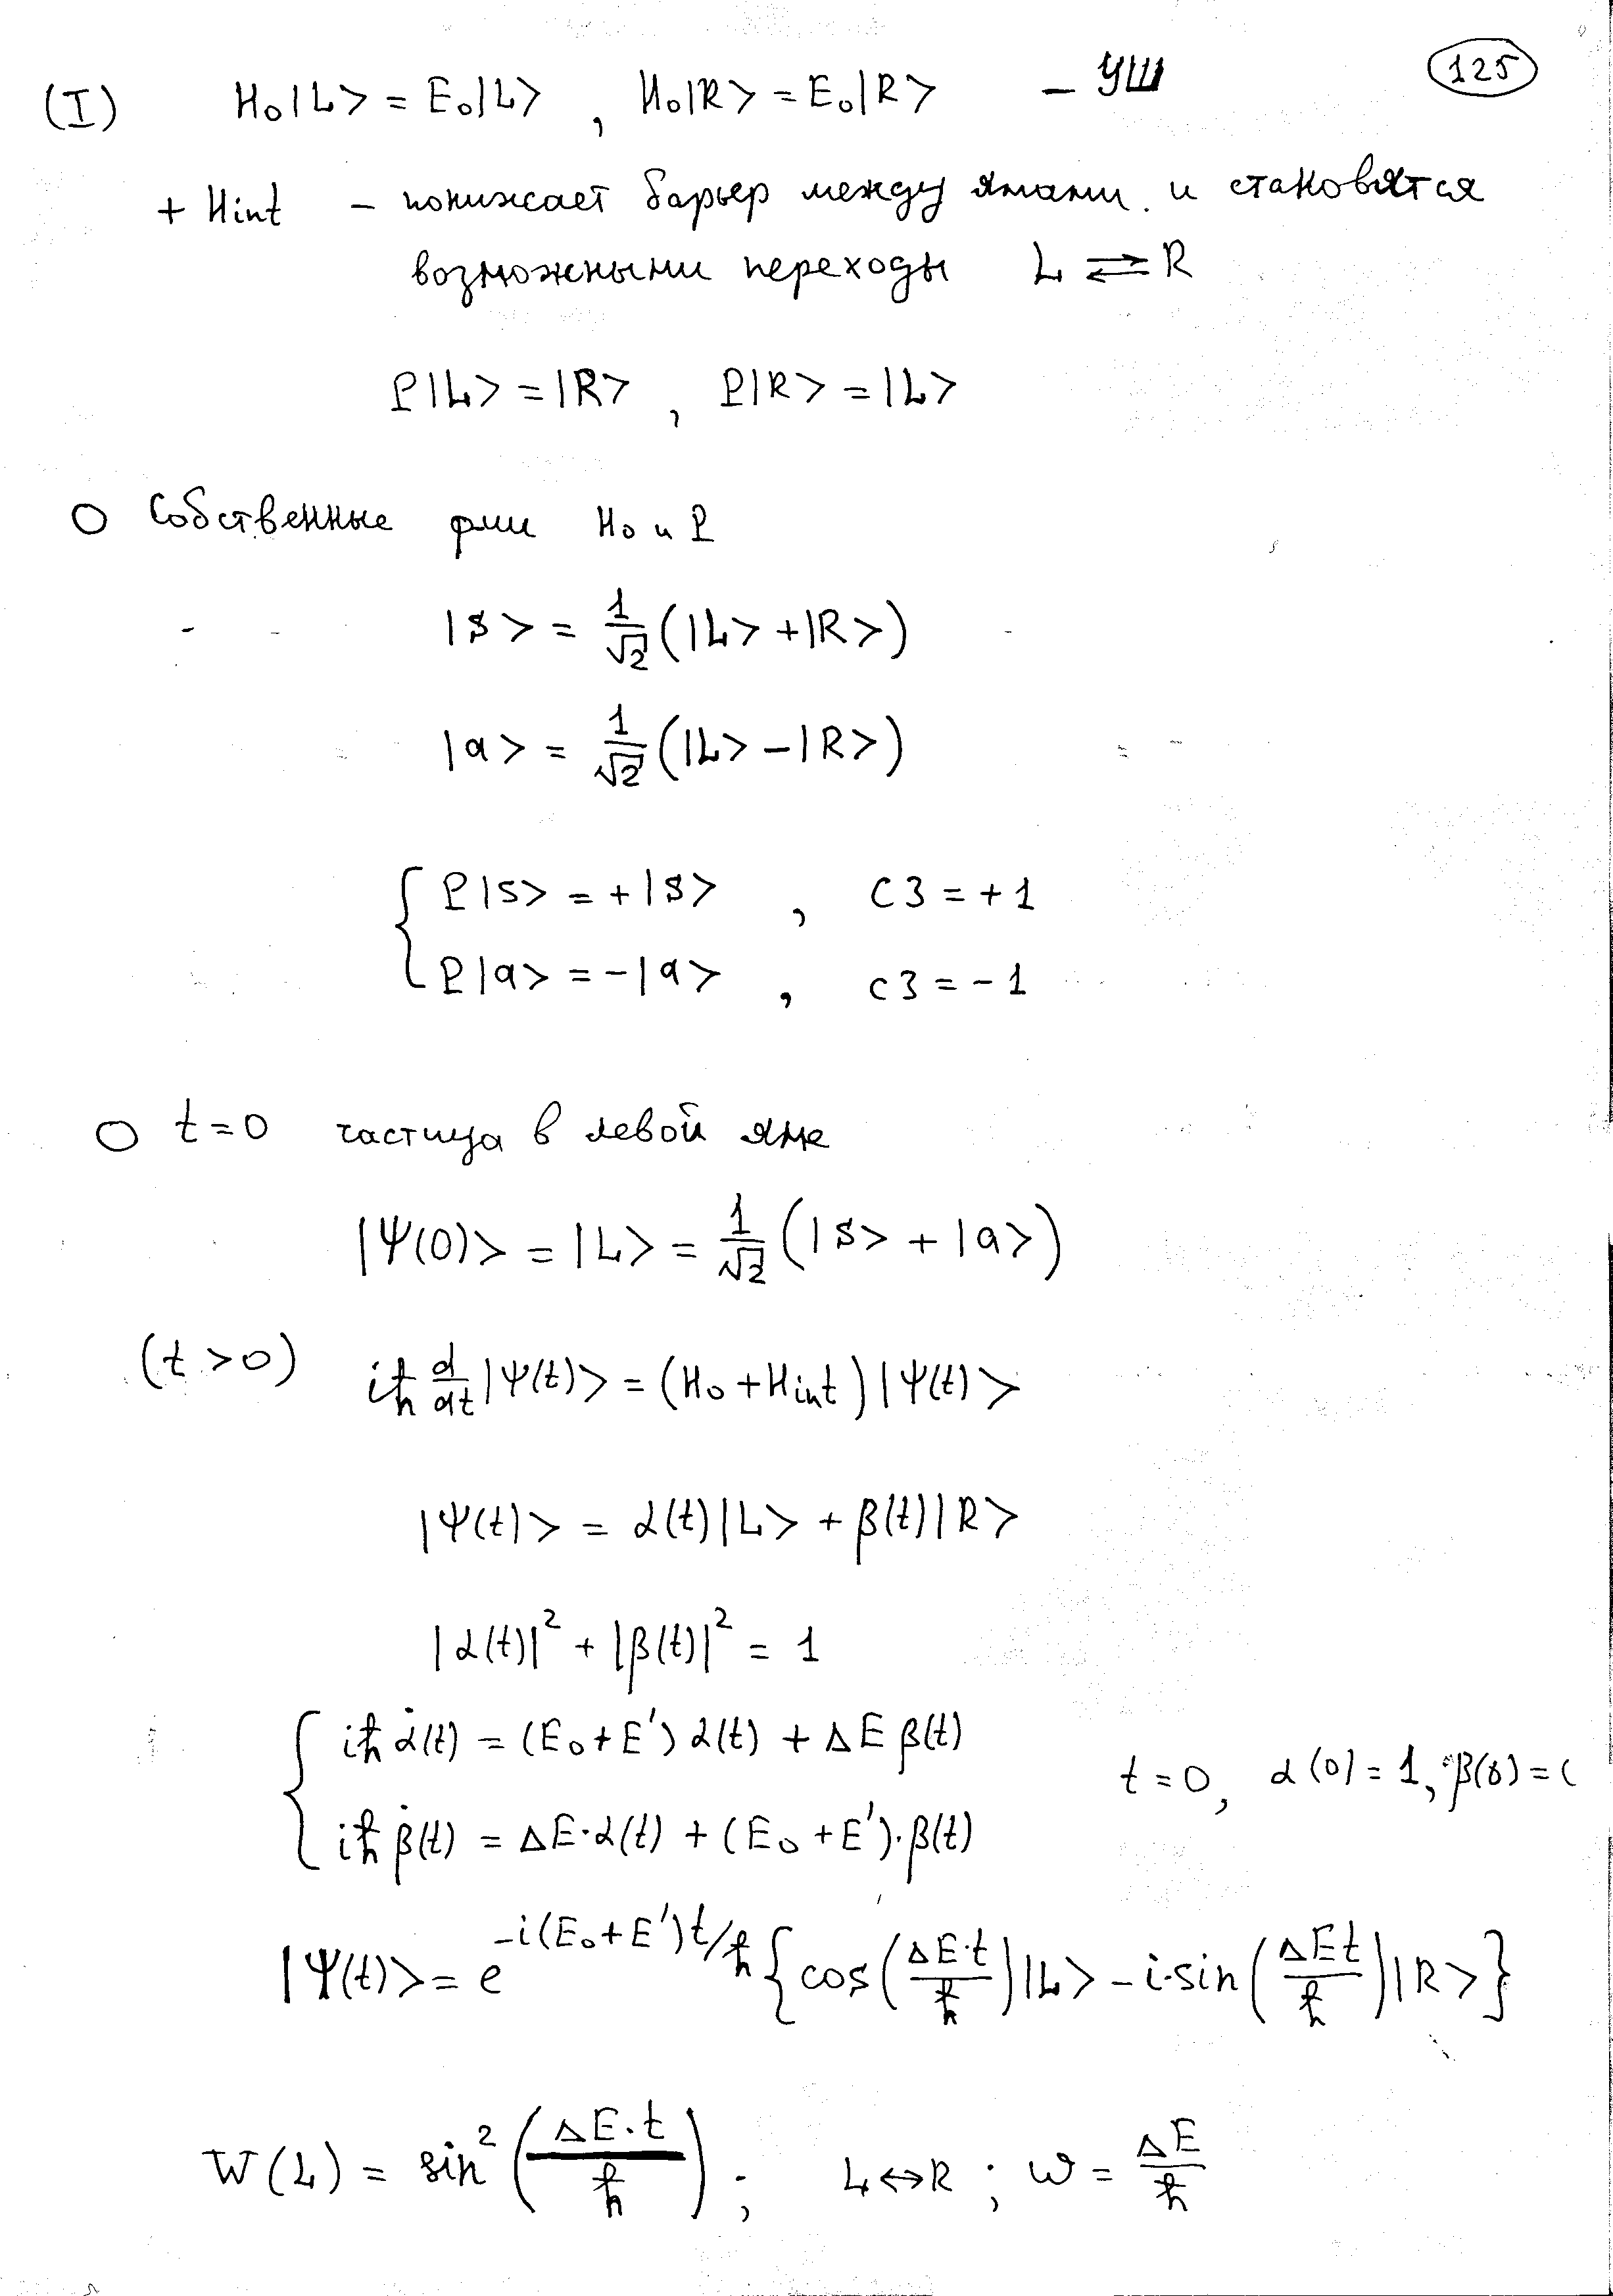 125
(I) H₀|L> = E₀|L> , H₀|R> = E₀|R> – УШ
+ Hint – понижает барьер между ямами. и становятся
возможными переходы L ⇄ R
P|L> = |R> , P|R> = |L>
О Собственные фии H₀ и P
|S> = 1/√2 (|L> + |R>)
|a> = 1/√2 (|L> – |R>)
{ P|S> = +|S> , СЗ = +1
P|a> = –|a> , СЗ = –1
О t = 0 частица в левой яме
|Ψ(0)> = |L> = 1/√2 (|S> + |a>)
(t > 0) iħ d/dt |Ψ(t)> = (H₀ + Hint) |Ψ(t)>
|Ψ(t)> = α(t)|L> + β(t)|R>
|α(t)|² + |β(t)|² = 1
{ iħ α̇(t) = (E₀ + E') α(t) + ΔE β(t)
t = 0, α(0) = 1, β(0) = (
iħ β̇(t) = ΔE·α(t) + (E₀ + E')·β(t)
|Ψ(t)> = e^{–i(E₀+E')t/ħ} {cos(ΔE·t/ħ)|L> – i·sin(ΔEt/ħ)|R>}
W(L) = sin²(ΔE·t/ħ) ; L↔R ; ω = ΔE/ħ